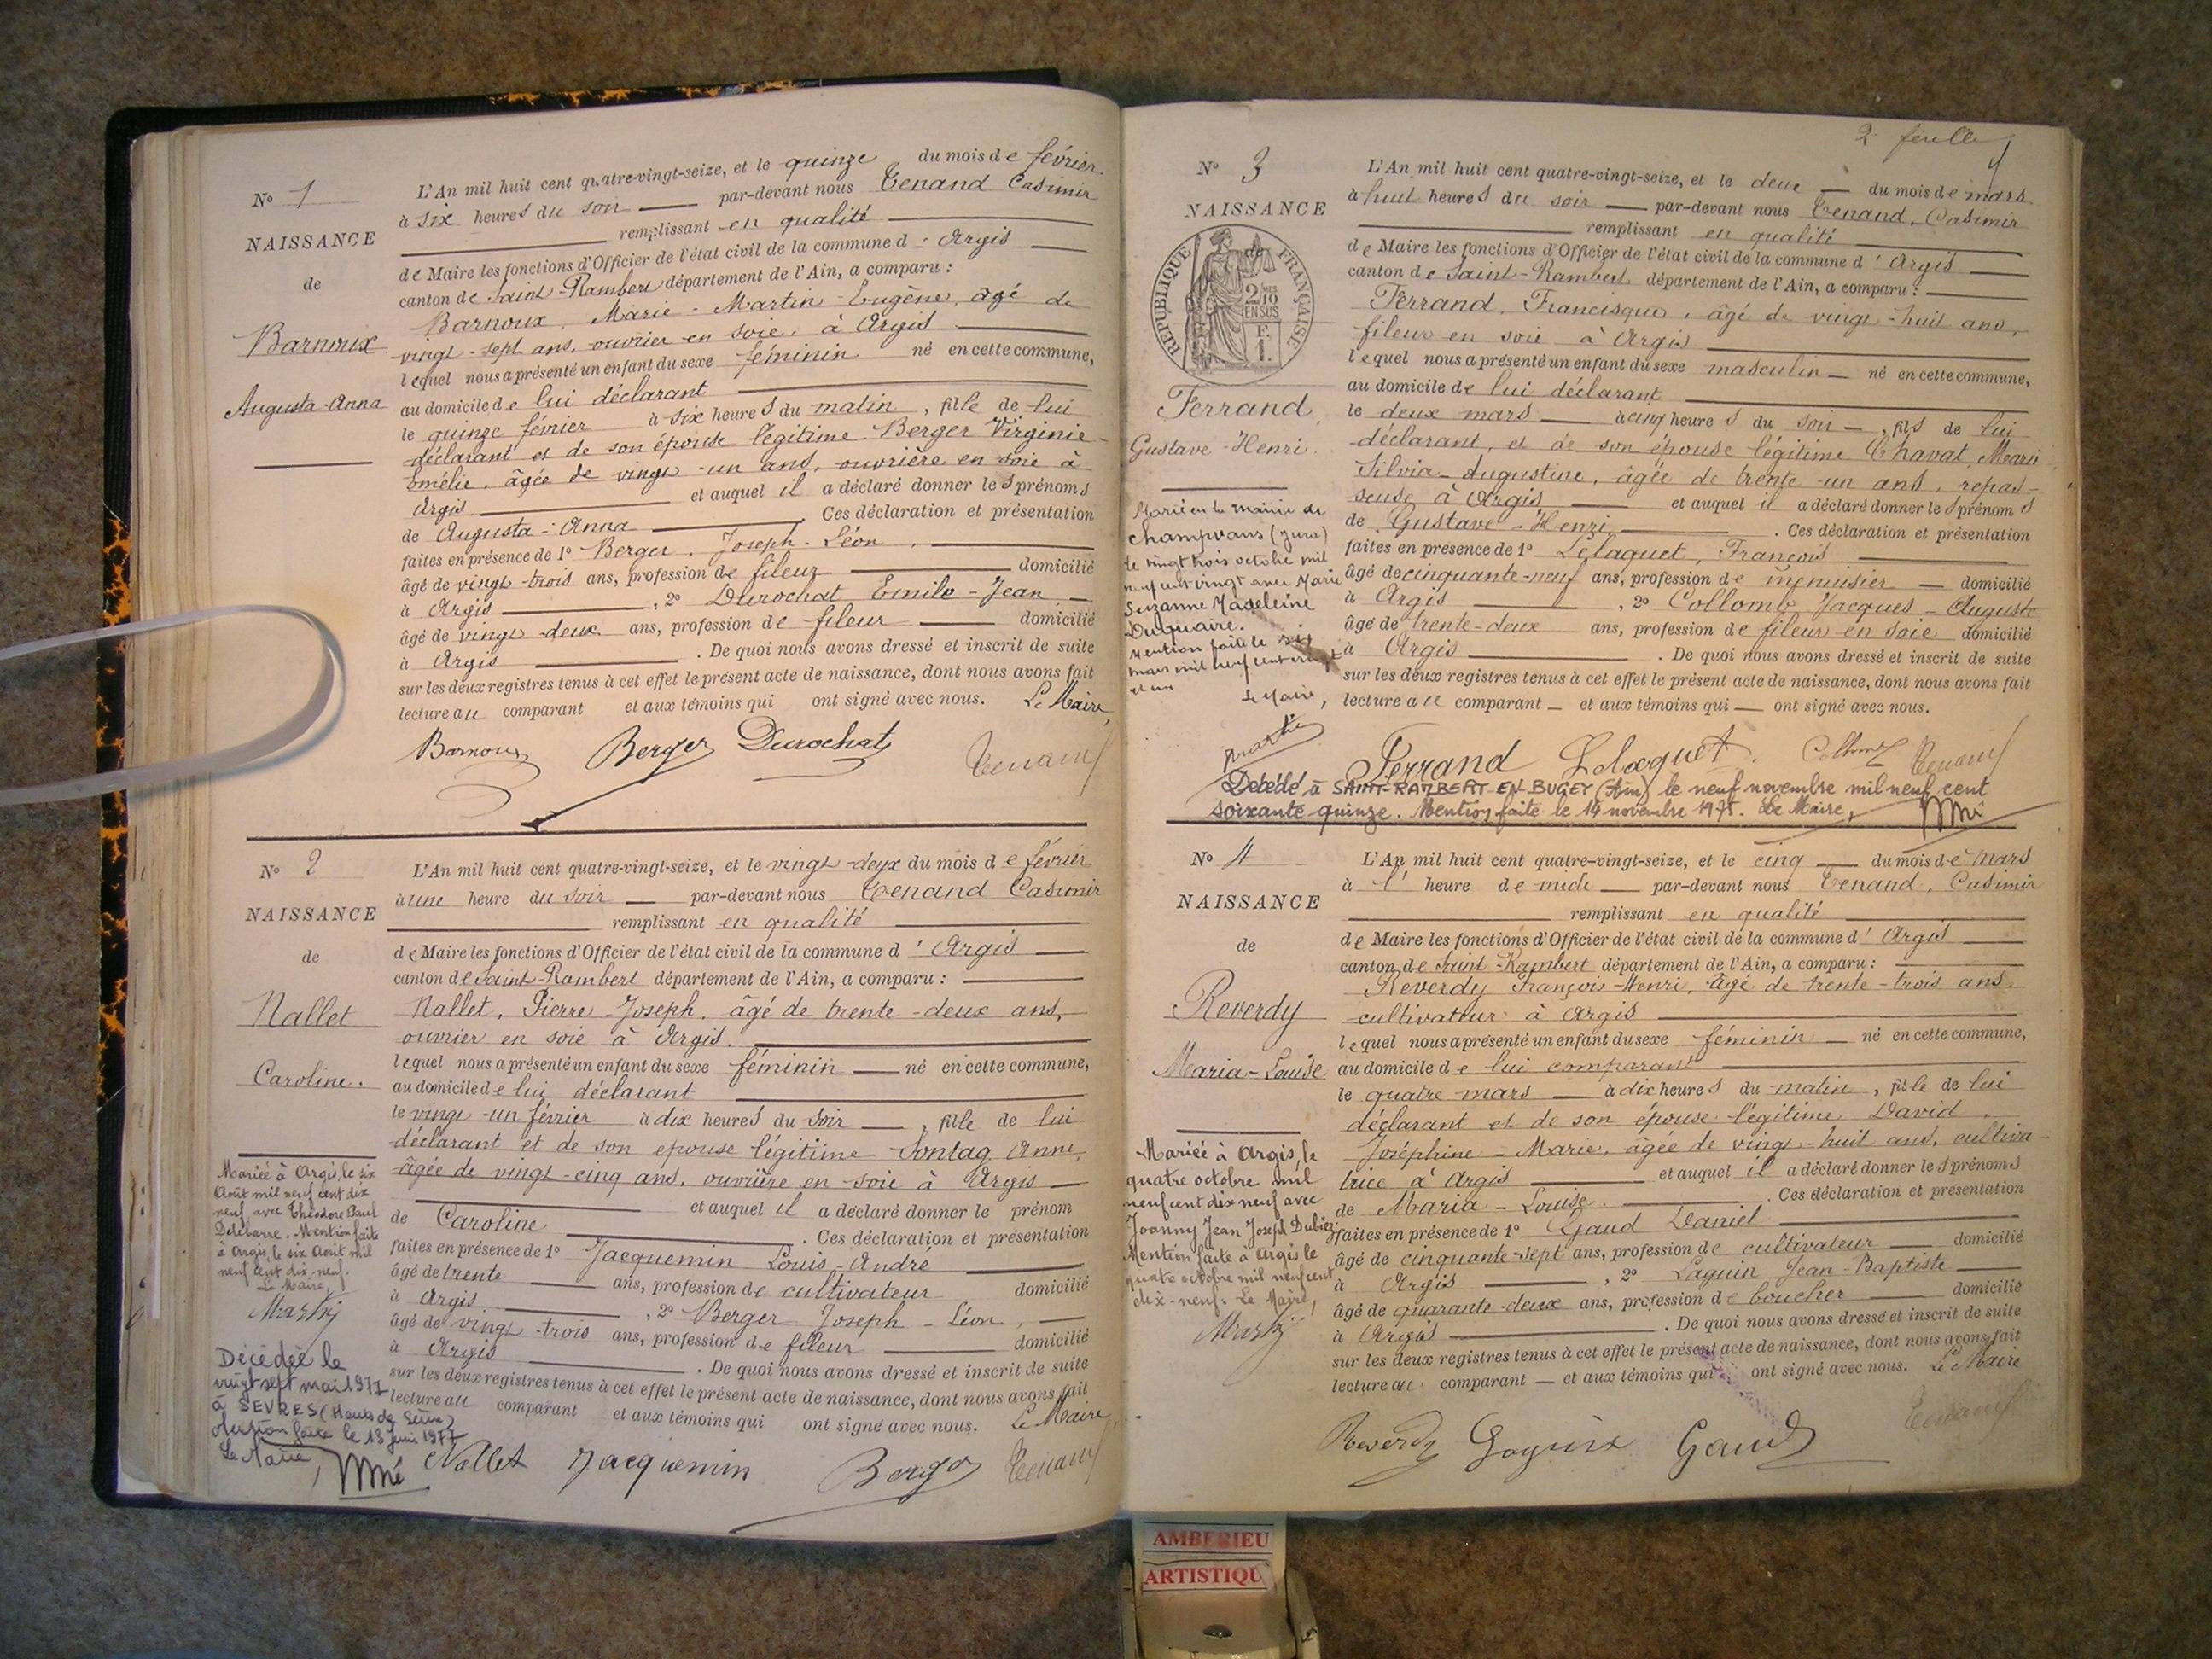 N° 1
NAISSANCE
de
Barnoux
Augusta-Anna
L'An mil huit cent quatre-vingt-seize, et le quinze du mois de février
à six heures du soir par-devant nous Tenand Casimir
remplissant en qualité
de Maire les fonctions d'Officier de l'état civil de la commune d'Argis
canton de Saint-Rambert département de l'Ain, a comparu :
Barnoux, Marie-Martin-Eugène, âgé de
vingt-sept ans, ouvrier en soie, à Argis
lequel nous a présenté un enfant du sexe féminin né en cette commune,
au domicile de lui déclarant
le quinze février à six heures du matin, fille de lui
déclarant et de son épouse légitime Berger Virginie-
Amélie, âgée de vingt-un ans, ouvrière en soie à
Argis et auquel il a déclaré donner les prénoms
de Augusta-Anna. Ces déclaration et présentation
faites en présence de 1° Berger, Joseph-Léon,
âgé de vingt-trois ans, profession de fileur domicilié
à Argis, 2° Durochat Emile-Jean
âgé de vingt-deux ans, profession de fileur domicilié
à Argis. De quoi nous avons dressé et inscrit de suite
sur les deux registres tenus à cet effet le présent acte de naissance, dont nous avons fait
lecture au comparant et aux témoins qui ont signé avec nous. Le Maire,
Barnoux Berger Durochat Tenand
N° 2
NAISSANCE
de
Nallet
Caroline.
Mariée à Argis, le six
Août mil neuf cent dix
neuf avec Théodore Paul
Delebarre. Mention faite
à Argis, le six Août mil
neuf cent dix-neuf.
Le Maire,
Décédée le
vingt sept mai 1977
à SEVRES (Hauts de Seine)
Mention faite le 13 Juin 1977
Le Maire,
L'An mil huit cent quatre-vingt-seize, et le vingt-deux du mois de février
à une heure du soir par-devant nous Tenand Casimir
remplissant en qualité
de Maire les fonctions d'Officier de l'état civil de la commune d'Argis
canton de Saint-Rambert département de l'Ain, a comparu :
Nallet, Pierre-Joseph, âgé de trente-deux ans,
ouvrier en soie à Argis.
lequel nous a présenté un enfant du sexe féminin né en cette commune,
au domicile de lui déclarant
le vingt-un février à dix heures du soir, fille de lui
déclarant et de son épouse légitime Sontag Anne,
âgée de vingt-cinq ans, ouvrière en soie à Argis
et auquel il a déclaré donner le prénom
de Caroline. Ces déclaration et présentation
faites en présence de 1° Jacquemin Louis-André
âgé de trente ans, profession de cultivateur domicilié
à Argis, 2° Berger Joseph-Léon,
âgé de vingt-trois ans, profession de fileur domicilié
à Argis. De quoi nous avons dressé et inscrit de suite
sur les deux registres tenus à cet effet le présent acte de naissance, dont nous avons fait
lecture au comparant et aux témoins qui ont signé avec nous. Le Maire,
Nallet Jacquemin Berger Tenand
2
N° 3
NAISSANCE
RÉPUBLIQUE FRANÇAISE
2/10 EN SUS
F. 1.
Ferrand
Gustave-Henri.
Marié en la mairie de
Champvans (Jura)
le vingt trois octobre mil
neuf cent vingt avec Marie
Suzanne Madeleine
Duquaire.
Mention faite le six
mars mil neuf cent vingt
et un
Le Maire,
L'An mil huit cent quatre-vingt-seize, et le deux du mois de mars
à huit heures du soir par-devant nous Tenand, Casimir
remplissant en qualité
de Maire les fonctions d'Officier de l'état civil de la commune d'Argis
canton de Saint-Rambert département de l'Ain, a comparu :
Ferrand, Francisque, âgé de vingt-huit ans,
fileur en soie à Argis
lequel nous a présenté un enfant du sexe masculin né en cette commune,
au domicile de lui déclarant
le deux mars à cinq heures du soir, fils de lui
déclarant, et de son épouse légitime Chavat, Marie
Silvia-Augustine, âgée de trente-un ans, repas-
seuse à Argis et auquel il a déclaré donner les prénoms
de Gustave-Henri. Ces déclaration et présentation
faites en présence de 1° Lelaquet, François
âgé de cinquante-neuf ans, profession de menuisier domicilié
à Argis, 2° Collomb Jacques-Auguste
âgé de trente-deux ans, profession de fileur en soie domicilié
à Argis. De quoi nous avons dressé et inscrit de suite
sur les deux registres tenus à cet effet le présent acte de naissance, dont nous avons fait
lecture au comparant et aux témoins qui ont signé avec nous.
Ferrand Lelaquet Collomb Tenand
Décédé à SAINT-RAMBERT-EN-BUGEY (Ain) le neuf novembre mil neuf cent
soixante quinze. Mention faite le 14 novembre 1975. Le Maire,
N° 4
NAISSANCE
de
Reverdy
Maria-Louise
Mariée à Argis, le
quatre octobre mil
neuf cent dix neuf avec
Joanny Jean Joseph Dubiez.
Mention faite à Argis le
quatre octobre mil neuf cent
dix-neuf. Le Maire,
L'An mil huit cent quatre-vingt-seize, et le cinq du mois de mars
à l'heure de midi par-devant nous Tenand, Casimir
remplissant en qualité
de Maire les fonctions d'Officier de l'état civil de la commune d'Argis
canton de Saint-Rambert département de l'Ain, a comparu :
Reverdy François-Henri, âgé de trente-trois ans,
cultivateur à Argis
lequel nous a présenté un enfant du sexe féminin né en cette commune,
au domicile de lui comparant
le quatre mars à dix heures du matin, fille de lui
déclarant et de son épouse légitime David
Joséphine-Marie, âgée de vingt-huit ans, cultiva-
trice à Argis et auquel il a déclaré donner les prénoms
de Maria-Louise. Ces déclaration et présentation
faites en présence de 1° Gaud Daniel
âgé de cinquante-sept ans, profession de cultivateur domicilié
à Argis, 2° Laguin Jean-Baptiste
âgé de quarante-deux ans, profession de boucher domicilié
à Argis. De quoi nous avons dressé et inscrit de suite
sur les deux registres tenus à cet effet le présent acte de naissance, dont nous avons fait
lecture au comparant et aux témoins qui ont signé avec nous. Le Maire
Reverdy Gaud Tenand
AMBERIEU
ARTISTIQU